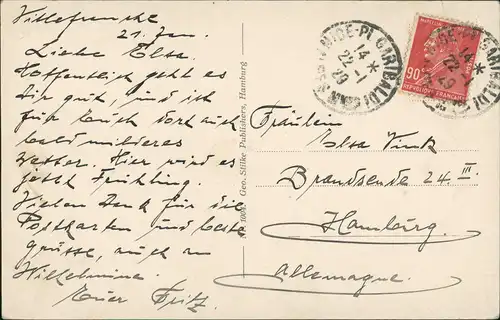 Villefranche
21. Jan.
Liebe Elsa.
Hoffentlich geht es
Dir gut, und ist
für Euch dort auch
bald milderes
Wetter. Hier wird es
jetzt Frühling.
Vielen Dank für die
Postkarten und beste
Grüsse, auch an
Wilhelmine.
Euer Fritz.
Geo. Stilke Publishers, Hamburg
NICE-PL GARIBALDI
14 *
22-1
29
90c
REPUBLIQUE FRANÇAISE
Fräulein
Elsa
Brandsende 24 III.
Hamburg
Allemagne.